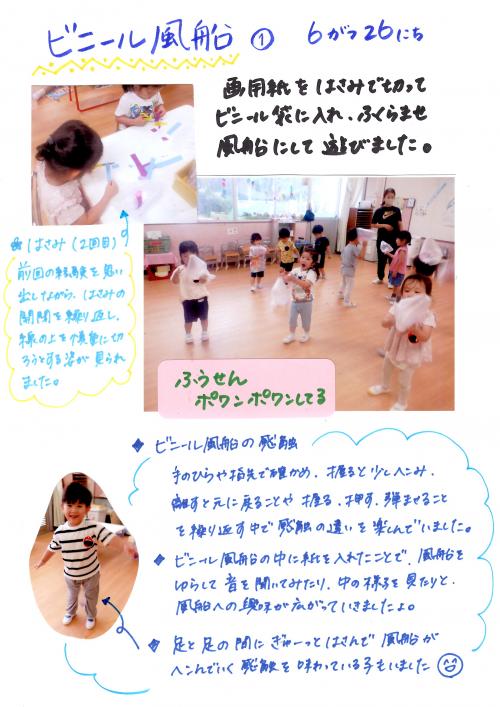 ビニール風船 ① 6がつ26にち
画用紙をはさみで切って
ビニール袋に入れ、ふくらませ
風船にして遊びました。
はさみ（2回目）
前回の経験を思い
出しながら、はさみの
開閉を繰り返し、
線の上を慎重に切
ろうとする姿が見られ
ました。
ふうせん
ポワンポワンしてる
◆ ビニール風船の感触
手のひらや指先で確かめ、握ると少しへこみ、
離すと元に戻ることや握る、押す、弾ませること
を繰り返す中で感触の違いを楽しんでいました。
◆ ビニール風船の中に紙を入れたことで、風船を
ゆらして音を聞いてみたり、中の様子を見たりと、
風船への興味が広がっていきましたよ。
◆ 足と足の間にぎゅーっとはさんで風船が
へこんでいく感触を味わっている子もいました